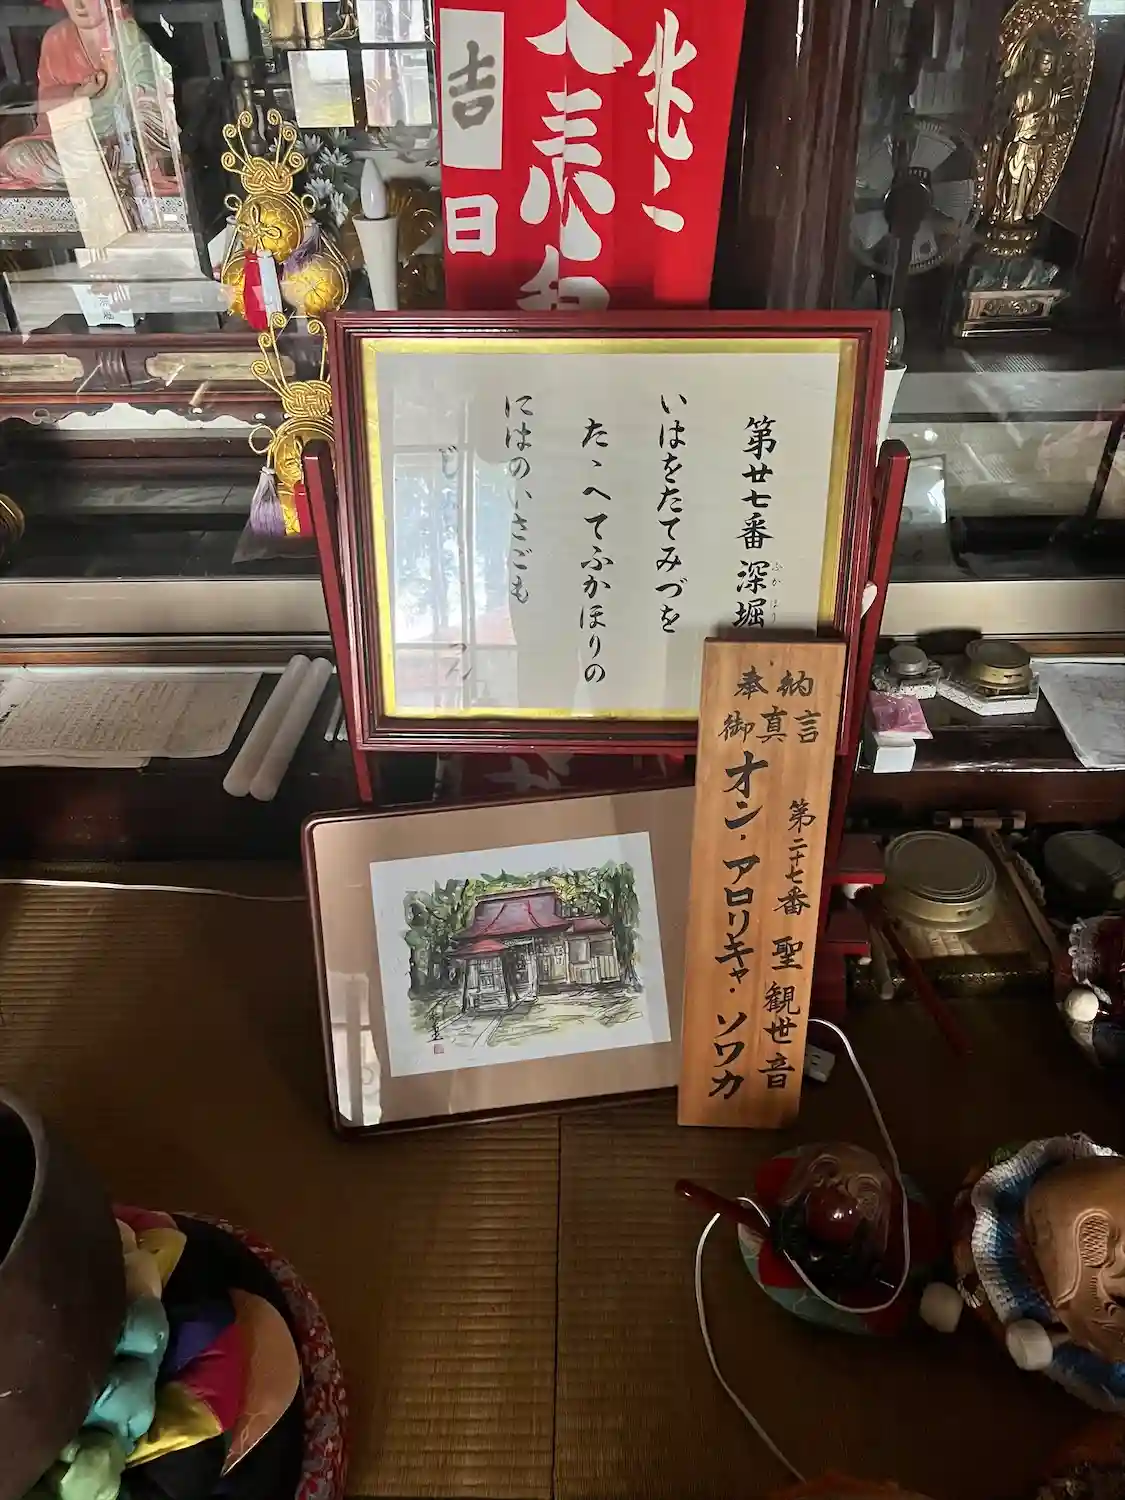 吉
日
第廿七番 深堀
ふかほり
いはをたてみづを
たゝへてふかほりの
にはのいさごも
じ
奉納
御真言
第二十七番 聖観世音
オン・アロリキャ・ソワカ